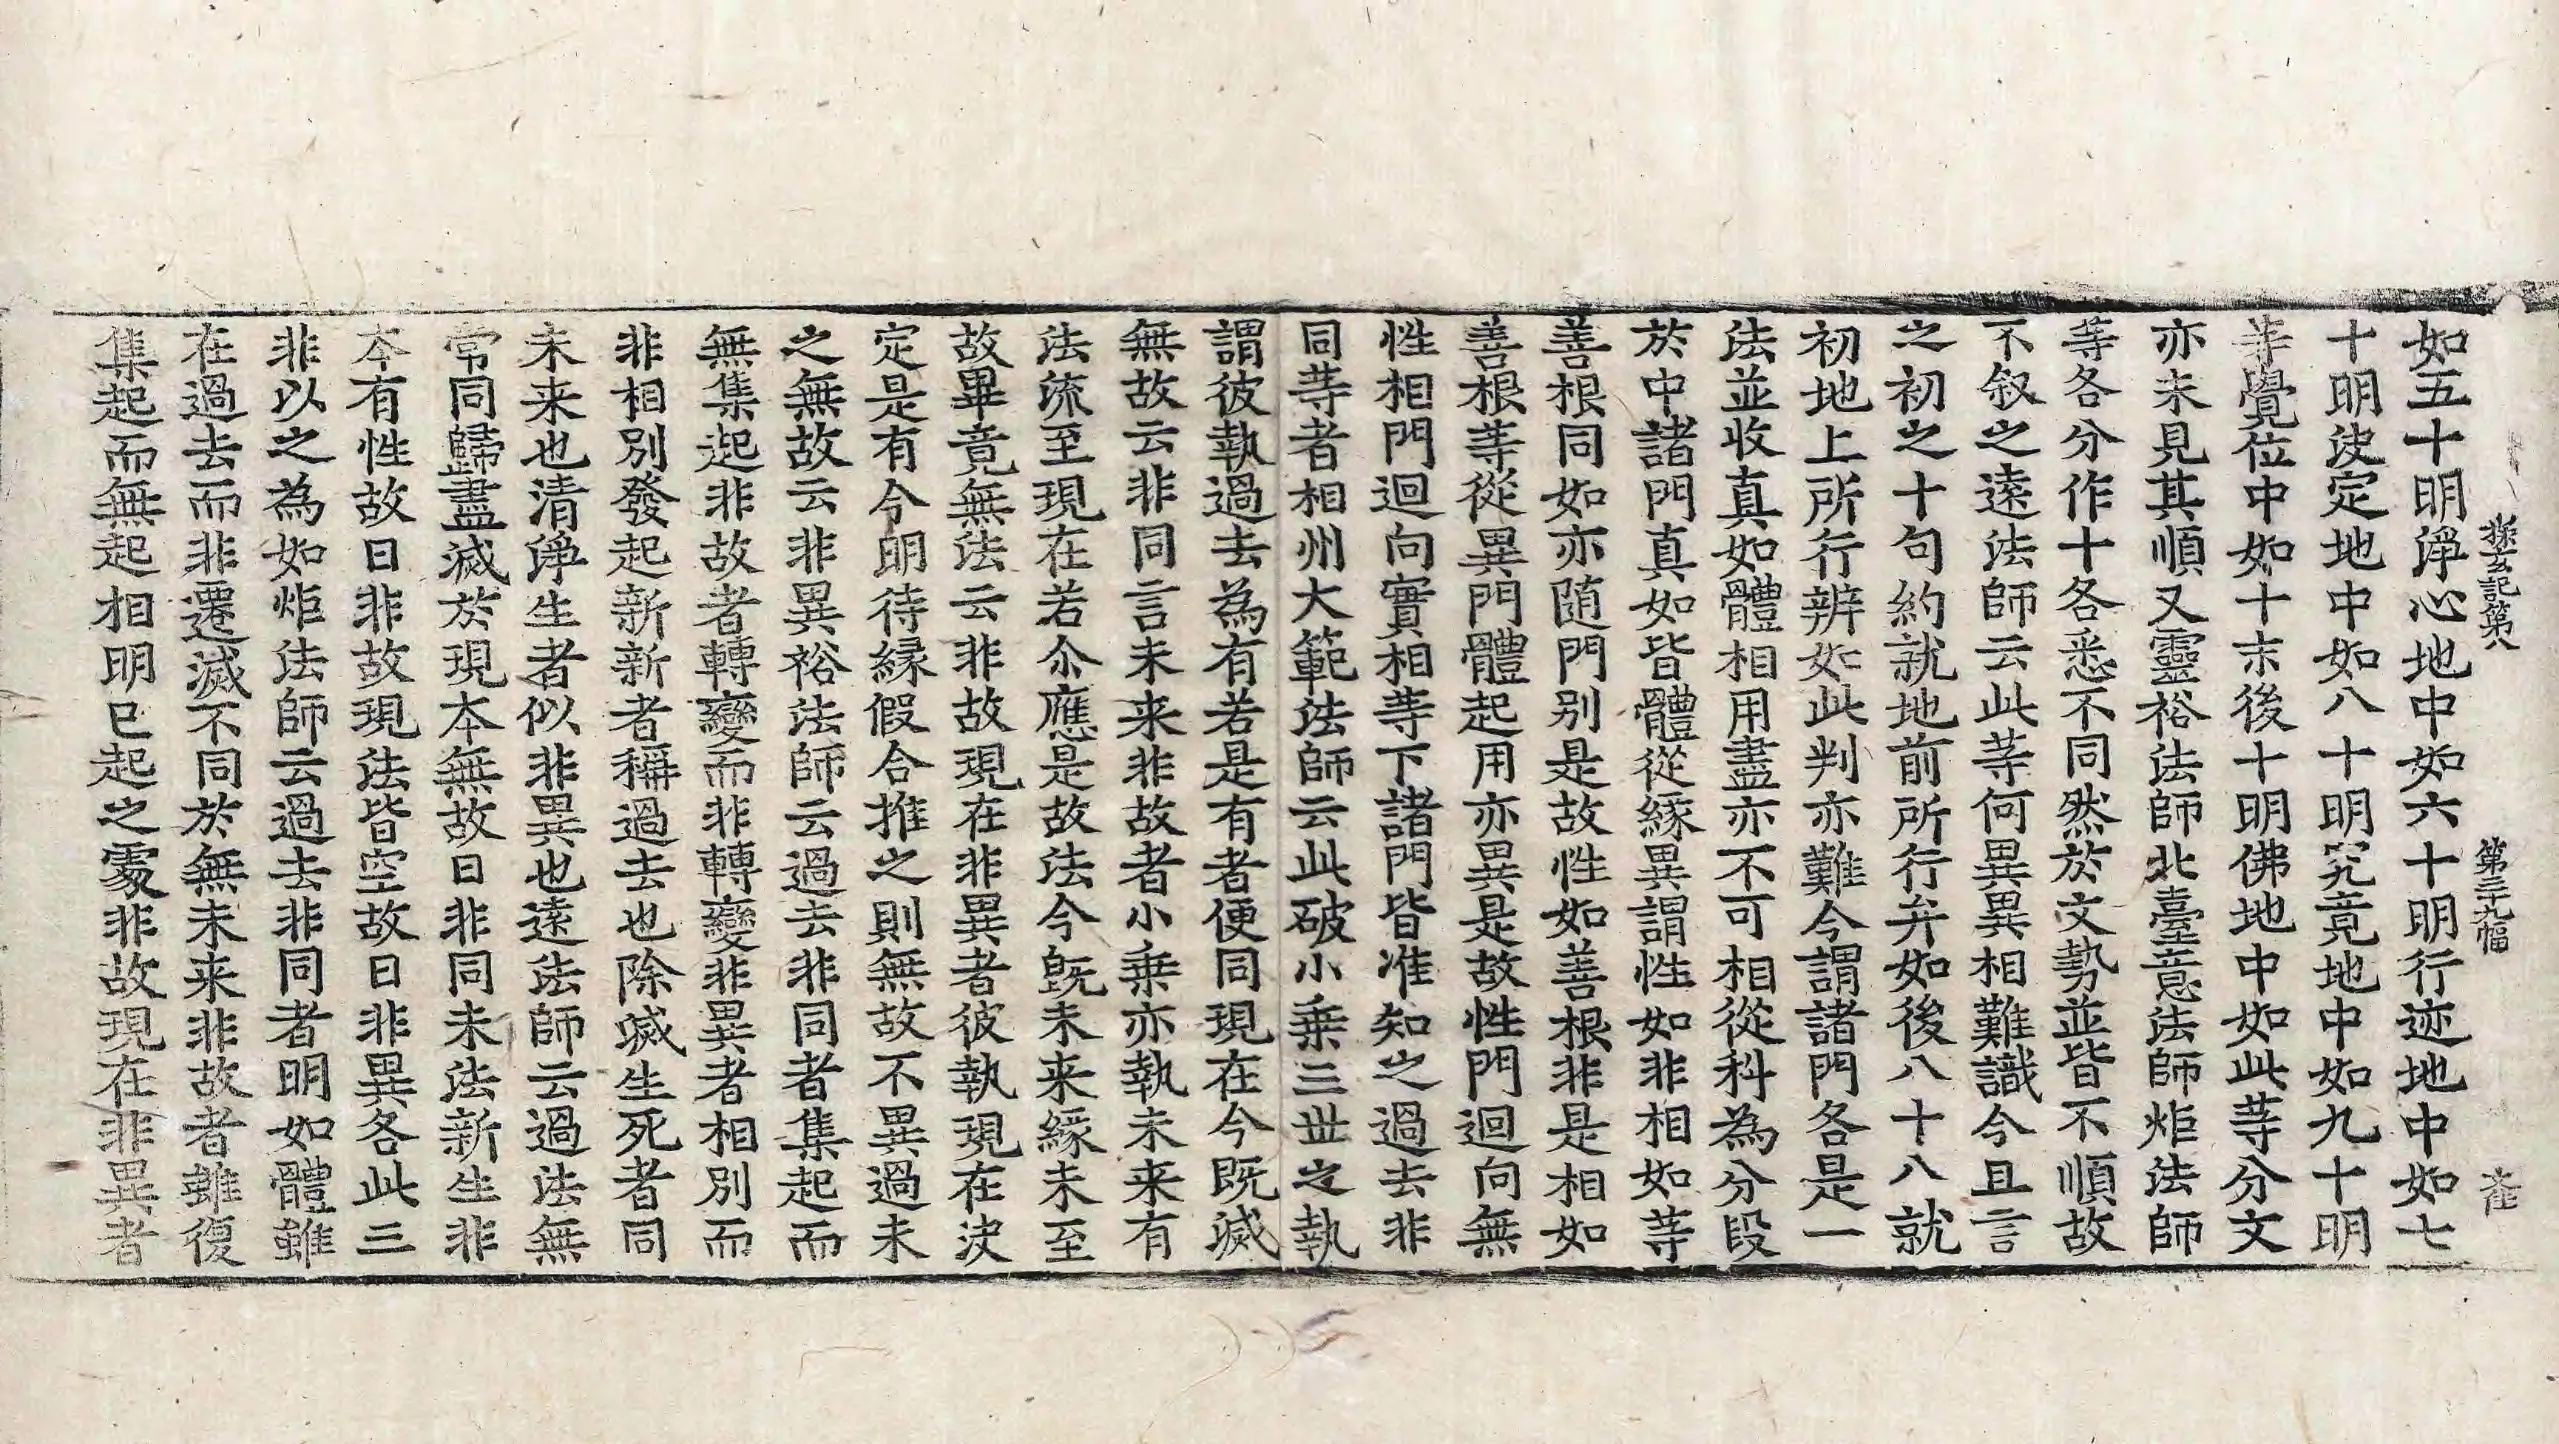 探玄記第八　第三十九幅　大佐
如五十明淨心地中如六十明行迹地中如七
十明決定地中如八十明究竟地中如九十明
等覺位中如十末後十明佛地中如此等分文
亦未見其順又靈裕法師北臺意法師炬法師
等各分作十各悉不同然於文勢並皆不順故
不叙之遠法師云此等何異異相難識今且言
之初之十句約就地前所行弁如後八十八就
初地上所行辨如此判亦難今謂諸門各是一
法並收真如體相用盡亦不可相從科為分段
於中諸門真如皆體從緣異謂性如非相如等
善根同如亦随門別是故性如善根非是相如
善根等從異門體起用亦異是故性門迴向無
性相門迴向實相等下諸門皆准知之過去非
同等者相州大範法師云此破小乗三世之執
謂彼執過去為有若是有者便同現在今既滅
無故云非同言未来非故者小乗亦執未来有
法流至現在若尒應是故法今旣未来緣未至
故畢竟無法云非故現在非異者彼執現在決
定是有今明待縁假合推之則無故不異過未
之無故云非異裕法師云過去非同者集起而
無集起非故者轉變而非轉變非異者相別而
非相別發起新新者稱過去也除滅生死者同
未来也清淨生者似非異也遠法師云過法無
常同歸盡滅於現本無故曰非同未法新生非
本有性故曰非故現法皆空故曰非異各此三
非以之為如炬法師云過去非同者明如體雖
在過去而非遷滅不同於無未来非故者雖復
集起而無起相明已起之處非故現在非異者